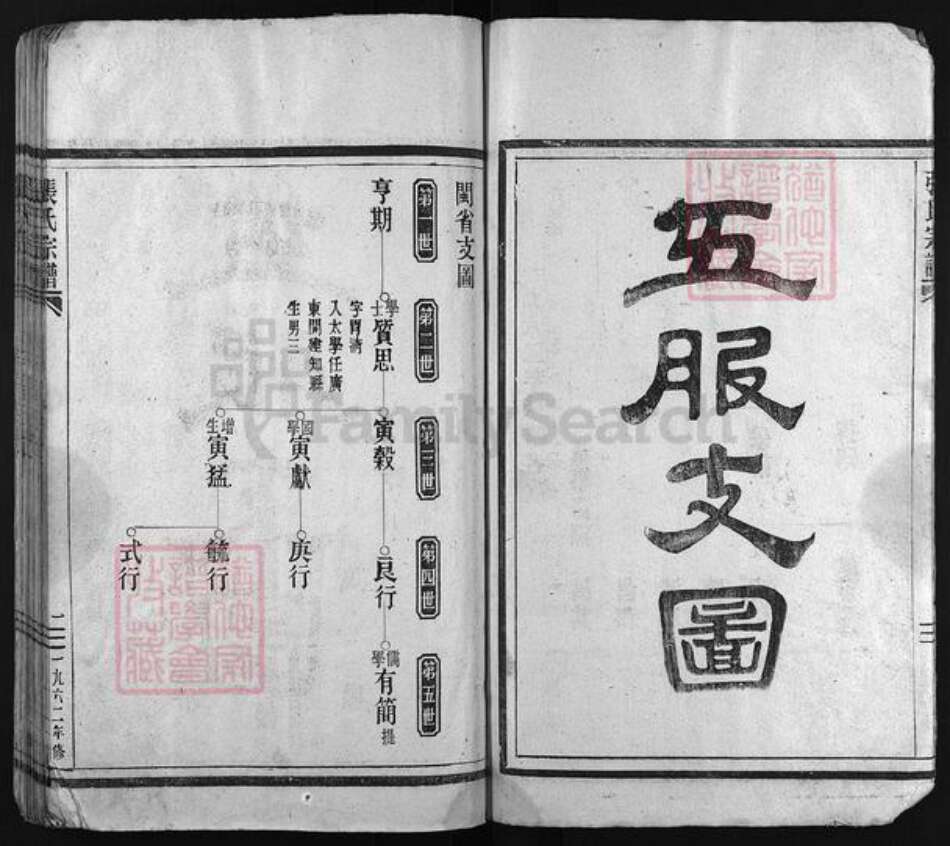 五服支圖
張氏宗譜
閩省支圖
第一世
第二世
第三世
第四世
第五世
亨期
學士
質思
字胃清
入太學任廣
東開建知縣
生男三
寅穀
良行
儒學
有簡
提
國學
寅獻
庚行
增生
寅猛
毓行
式行
張氏宗譜
一九六二年修
FamilySearch